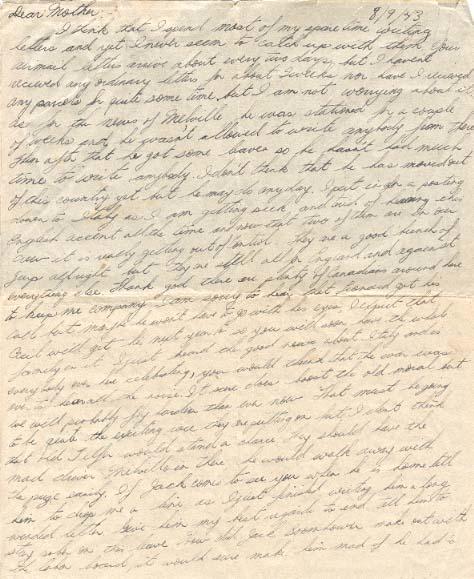 Dear Mother: 8/9/43
I think that I spend most of my spare time writing
letters and yet I never seem to catch up with them. Your
airmail letters arrive about every two days, but I havent
received any ordinary letters for about 3 weeks nor have I received
any parcels for quite some time, but I am not worrying about it.
as for the news of Melville he was stationed for a couple
of weeks and he wasn't allowed to write anybody from there
then after that he got some leave so he hasn't had much
time to write anybody. I dont think that he has moved out
of this country yet but he may do any day. I put in for a posting
down to Italy as I am getting sick and tired of hearing this
English accent all the time and now that two of them are in our
crew it is really getting out of control. They are a good bunch of
guys allright but they are still all for England and against
everything else. Thank god there are plenty of Canadians around here
to keep me company. I am sorry to hear that got his
call but maybe he wont have to go with his eyes. I expect that
Cecil will get his next year so you will soon have the whole
family in it. I just heard the good news about Italy and is
everybody ever celebrating, you would think that the war was
over to hear all the noise. It sure does boost the old morale but
we will probably fly harder than ever now. That must be going
to be quite the race they are putting on but I dont think
that would stand a chance. They should have
Melville in there he would walk away with
the prize easily. If Jack comes to see you when he is home tell
him to drop me a line as I just finished writing him a long
winded letter. Give him my best regards to and tell him to
stay sober on this leave. How did Jack make out with
the labor board, it would sure make him mad if he had to